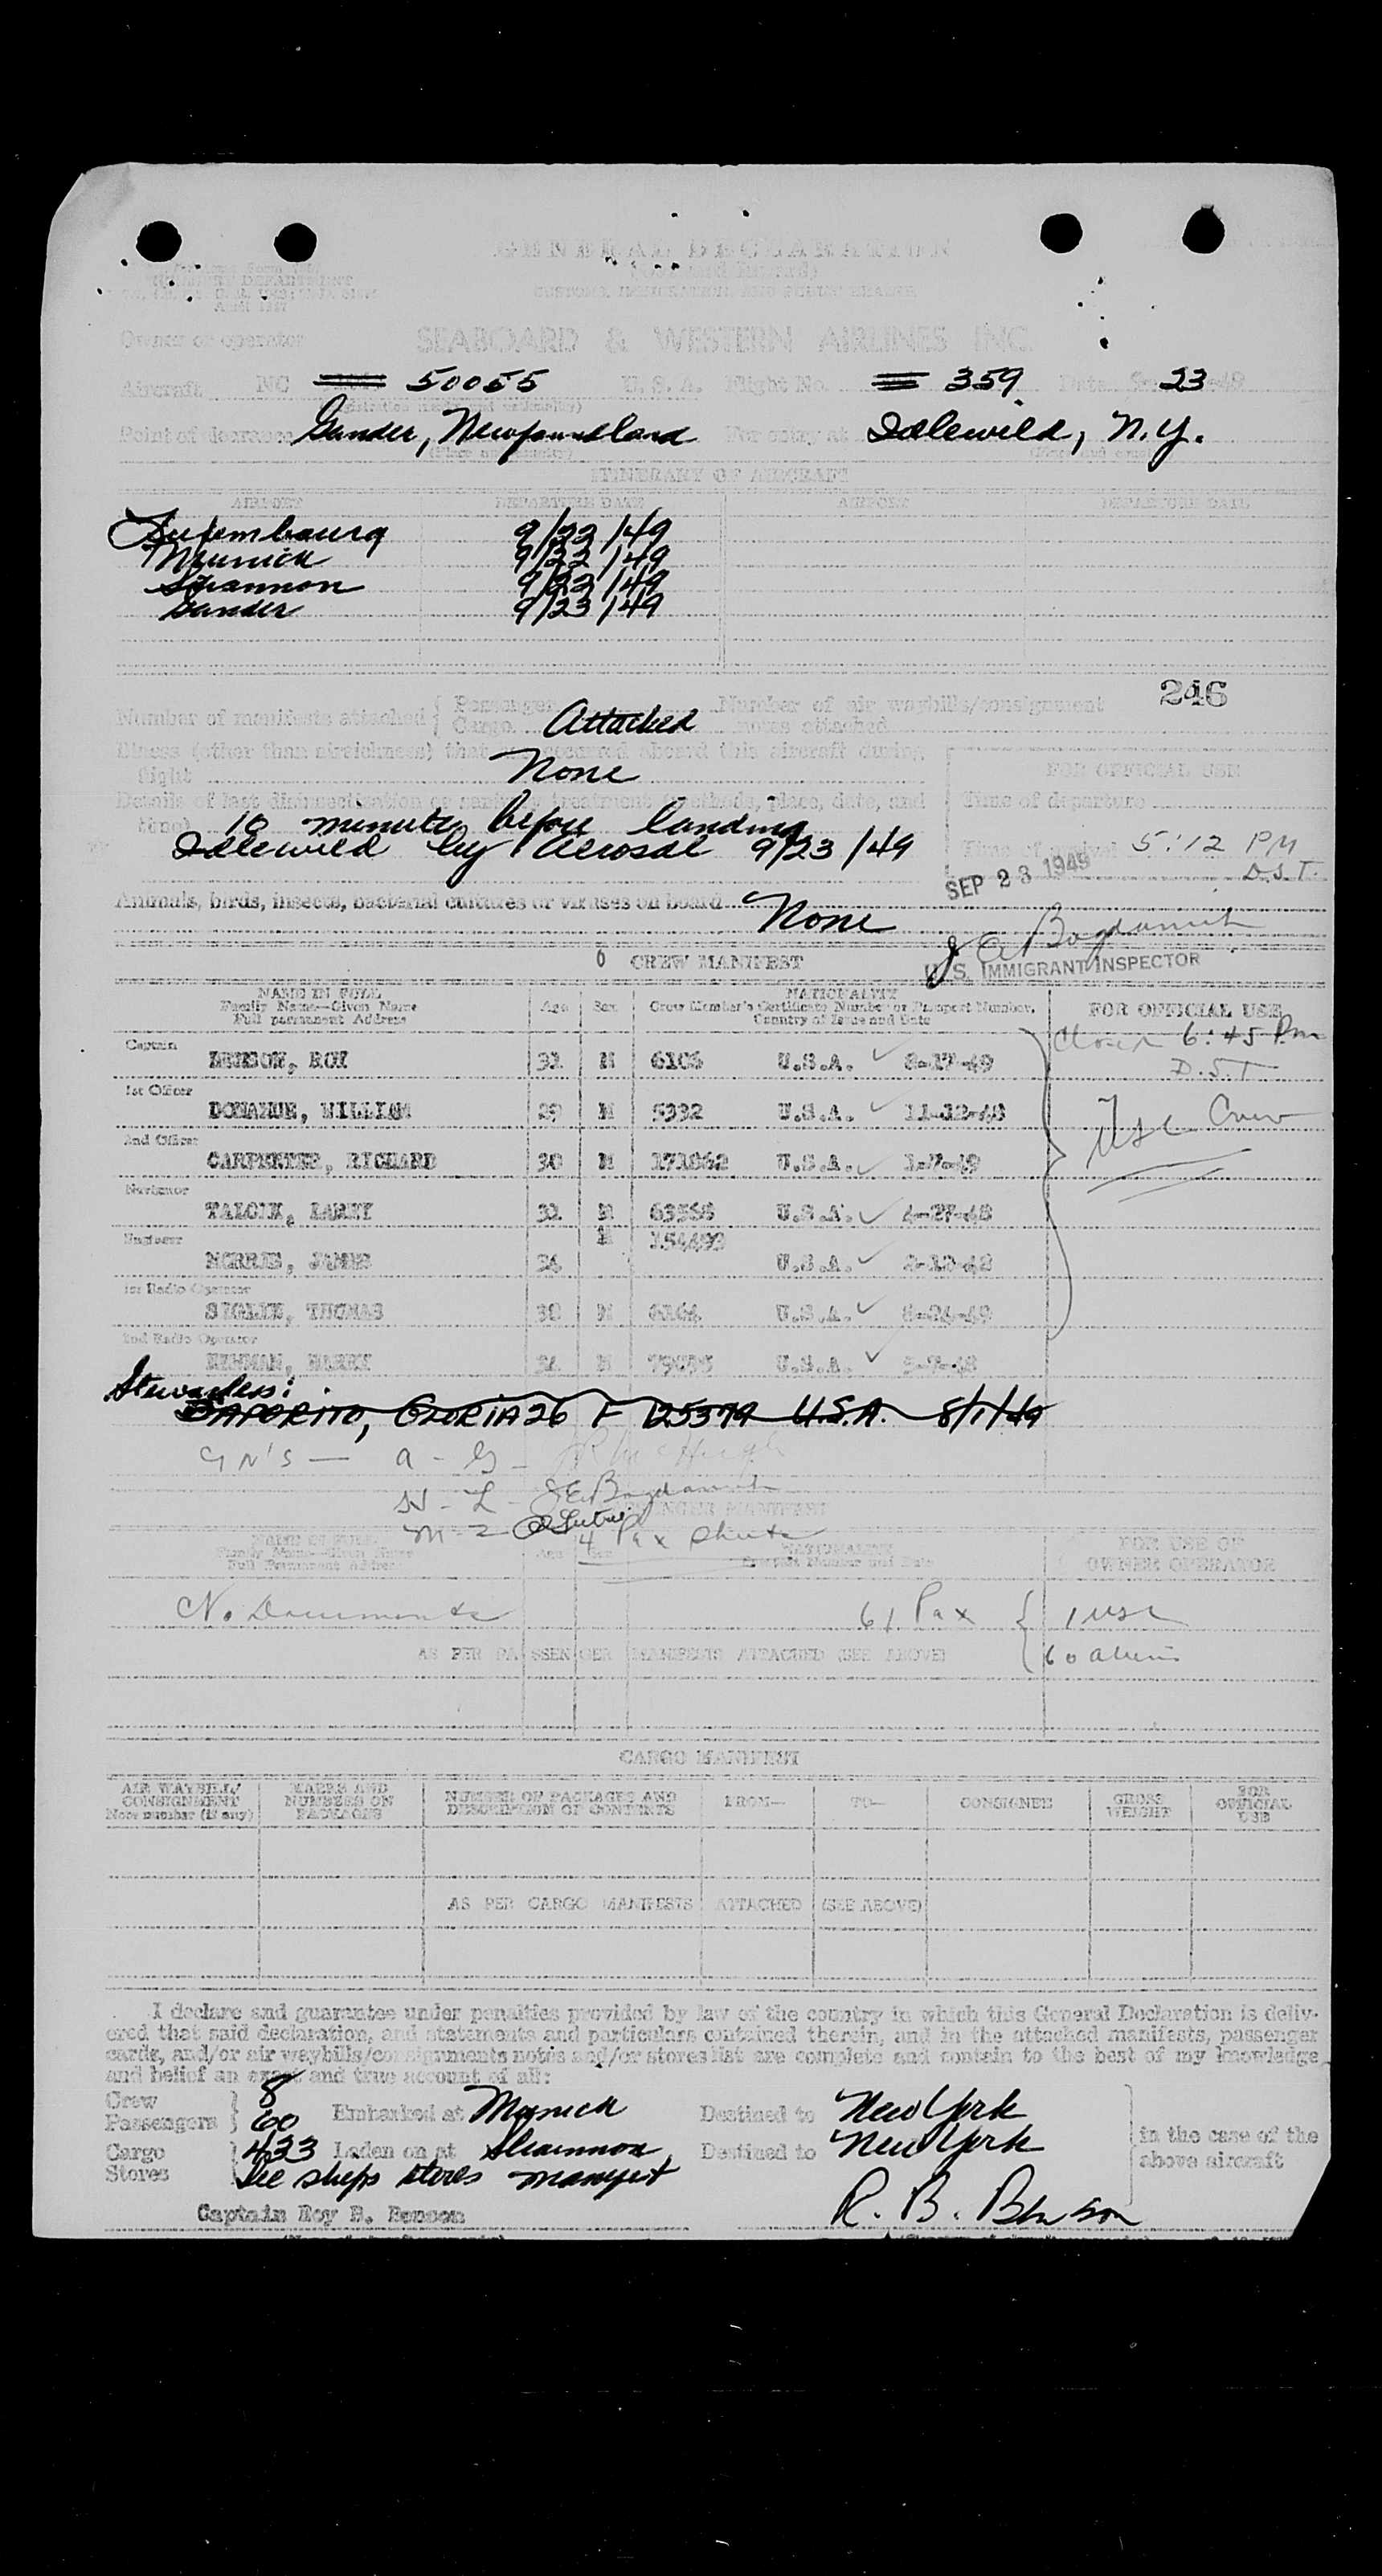 GENERAL DECLARATION
CUSTOMS, IMMIGRATION, AND PUBLIC HEALTH
TREASURY DEPARTMENT
April 1947
Owner or operator SEABOARD & WESTERN AIRLINES INC.
Aircraft NC 50055 U. S. A. Flight No. 359 Date 23
Point of clearance Gander, Newfoundland For entry at Idlewild, N.Y.
ITINERARY OF AIRCRAFT
AIRPORT DEPARTURE DATE AIRPORT DEPARTURE DATE
Luxembourg 9/22/49
Munich 9/22/49
Shannon 9/23/49
Gander 9/23/49
246
Number of manifests attached { Passenger Number of air waybills/consignment
Cargo Attached notes attached
Illness (other than airsickness) that has occurred aboard this aircraft during
flight None
FOR OFFICIAL USE
Details of last disinsectization or sanitary treatment (methods, place, date, and
time) 10 minutes before landing
Idlewild by Aerosal 9/23/49
Time of departure
Time of arrival 5:12 PM
D.S.T.
SEP 23 1949
Animals, birds, insects, bacterial cultures or viruses on board None
U.S. IMMIGRANT INSPECTOR
CREW MANIFEST
NAME IN FULL
Family Name—Given Name
Full permanent Address
Age Sex
NATIONALITY
Crew Member's Certificate Number or Passport Number,
Country of Issue and Date
FOR OFFICIAL USE
6:45 Pm
D.S.T
Captain
BENSON, ROY 32 M 6106 U.S.A. 8-17-49
1st Officer
DONAHUE, WILLIAM 29 M 5332 U.S.A. 11-12-48
USC Crew
2nd Officer
CARPENTER, RICHARD 30 M 171862 U.S.A. 1-7-49
Navigator
LARRY 32 M U.S.A. 4-27-48
Engineer
MORRIS, JAMES 34 M 154493 U.S.A. 2-12-48
1st Radio Operator
THOMAS 30 M 6164 U.S.A. 8-24-49
2nd Radio Operator
NEWMAN, HARRY M U.S.A.
Stewardess:
SAPORITO, GLORIA 26 F 125379 U.S.A. 8/1/49
GN'S — a - G -
PASSENGER MANIFEST
4 Pax
NAME IN FULL
Family Name—Given Name
Full Permanent Address
Age Sex
NATIONALITY
Passport Number and Date
FOR USE OF
OWNER OPERATOR
No Documents 61 Pax { 1 USC
60 aliens
AS PER PASSENGER MANIFESTS ATTACHED (SEE ABOVE)
CARGO MANIFEST
AIR WAYBILL/
CONSIGNMENT
Note number (if any)
MARKS AND
NUMBERS ON
PACKAGES
NUMBER OF PACKAGES AND
DESCRIPTION OF CONTENTS
FROM— TO— CONSIGNEE
GROSS
WEIGHT
FOR
OFFICIAL
USE
AS PER CARGO MANIFESTS ATTACHED (SEE ABOVE)
I declare and guarantee under penalties provided by law of the country in which this General Declaration is deliv-
ered that said declaration, and statements and particulars contained therein, and in the attached manifests, passenger
cards, and/or air waybills/consignments notes and/or stores list are complete and contain to the best of my knowledge
and belief an exact and true account of all:
Crew 8
Passengers } 60 Embarked at Munich Destined to New York
Cargo } 433 Laden on at Shannon Destined to New York
Stores See ships stores manifest
in the case of the
above aircraft
Captain Roy B. Benson R. B. Benson